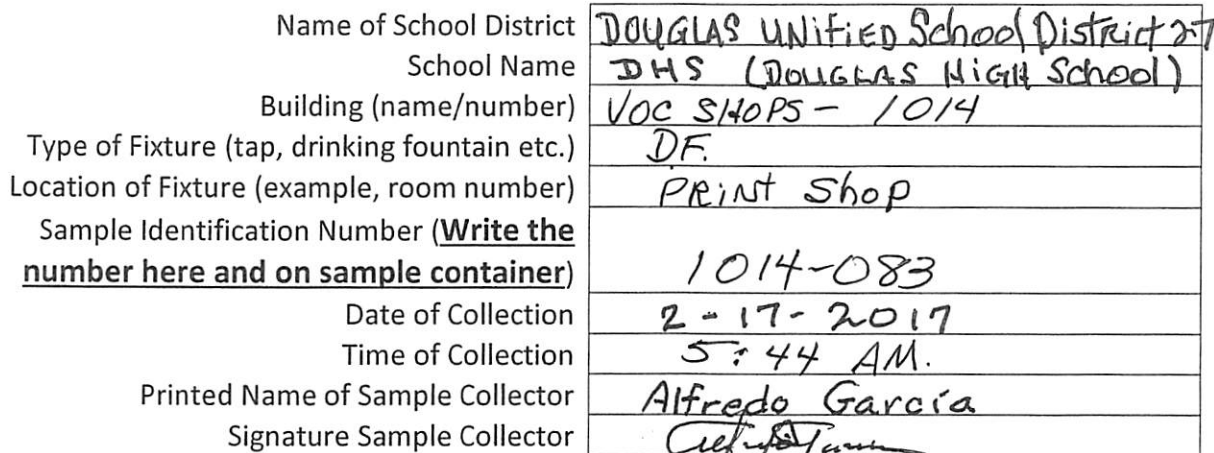 Name of School District DOUGLAS UNiFiED School District 27
School Name DHS (DOUGLAS HiGH School)
Building (name/number) VOC SHOPS - 1014
Type of Fixture (tap, drinking fountain etc.) DF.
Location of Fixture (example, room number) PRiNt Shop
Sample Identification Number (Write the
number here and on sample container) 1014-083
Date of Collection 2-17-2017
Time of Collection 5:44 AM.
Printed Name of Sample Collector Alfredo García
Signature Sample Collector